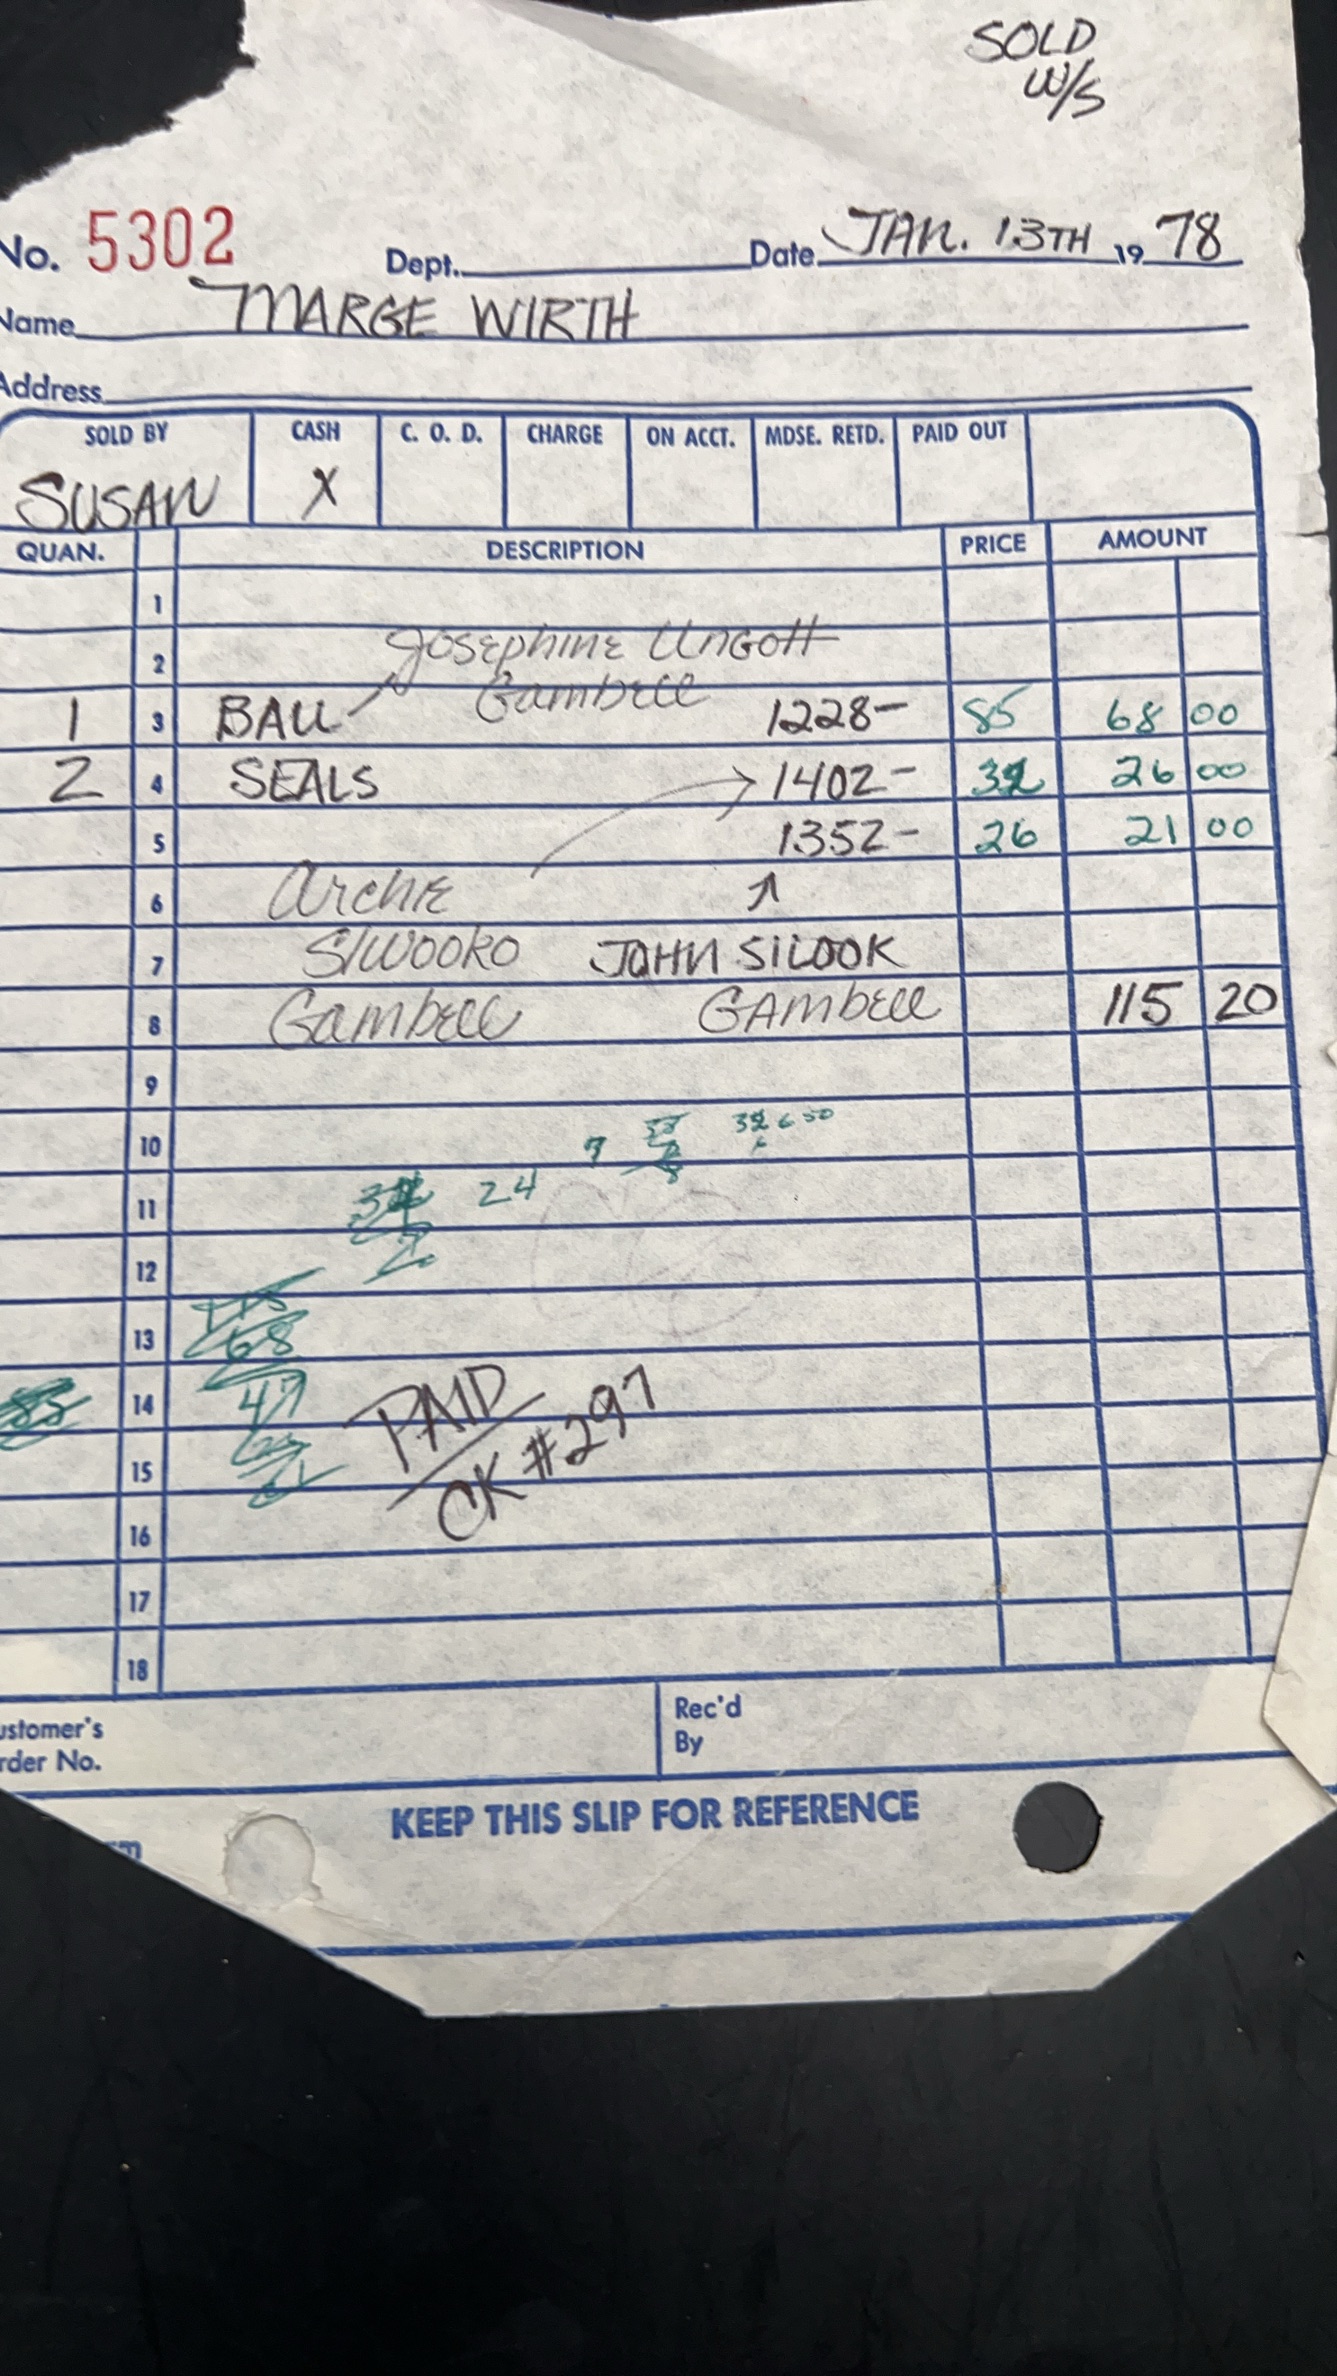 SOLD
W/S
No. 5302 Dept. Date JAN. 13TH 19 78
Name MARGE WIRTH
Address
SOLD BY CASH C. O. D. CHARGE ON ACCT. MDSE. RETD. PAID OUT
SUSAN X
QUAN. DESCRIPTION PRICE AMOUNT
1
2 Josephine Ungott
Gambell
1 3 BALL 1228- 85 68 00
2 4 SEALS 1402- 32 26 00
5 1352- 26 21 00
6 Archie
7 Siwooko JOHN SILOOK
8 Gambell Gambell 115 20
9
10 7 32 6 50
11 24
12 2
13 68
14 47
PAID
15
CK #297
16
17
18
Customer's Rec'd
Order No. By
KEEP THIS SLIP FOR REFERENCE